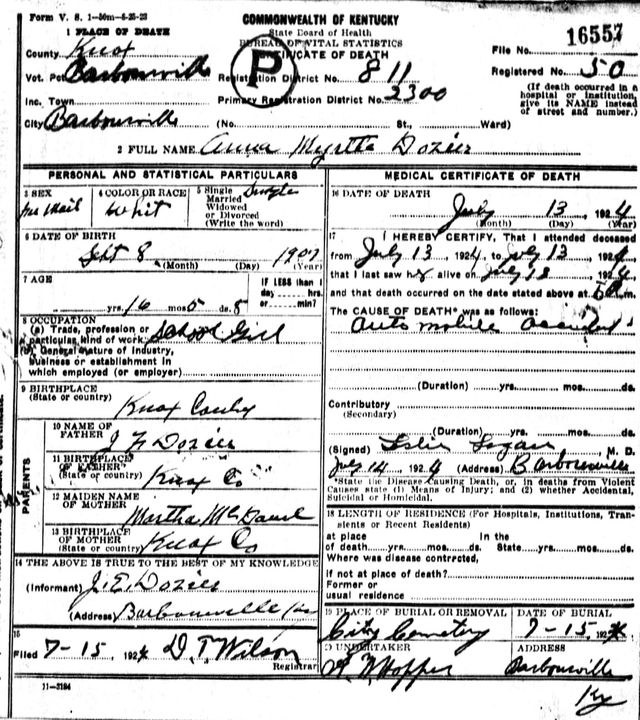 Form V. S. 1-50m-6-25-23
COMMONWEALTH OF KENTUCKY
State Board of Health
BUREAU OF VITAL STATISTICS
CERTIFICATE OF DEATH
File No. 16557
Registered No. 50
(If death occurred in a hospital or institution, give its NAME instead of street and number.)
1 PLACE OF DEATH
County Knox
Vot. Pct Barbourville
Inc. Town
City Barbourville (No. St., Ward)
P
Registration District No. 811
Primary Registration District No. 2300
2 FULL NAME Anna Myrtle Dozier
PERSONAL AND STATISTICAL PARTICULARS
3 SEX
4 COLOR OR RACE Whit
5 Single Married Widowed or Divorced (Write the word) Single
6 DATE OF BIRTH
Sept 8 1907
(Month) (Day) (Year)
7 AGE
yrs. 16 mos. ds.
IF LESS than 1 day, hrs. or min?
8 OCCUPATION
(a) Trade, profession or particular kind of work School Girl
(b) General nature of Industry, business or establishment in which employed (or employer)
9 BIRTHPLACE
(State or country) Knox County
PARENTS
10 NAME OF FATHER J F Dozier
11 BIRTHPLACE OF FATHER (State or country) Knox Co
12 MAIDEN NAME OF MOTHER Martha
13 BIRTHPLACE OF MOTHER (State or country) Knox Co
14 THE ABOVE IS TRUE TO THE BEST OF MY KNOWLEDGE
(Informant) J. E. Dozier
(Address) Barbourville
15
Filed 7-15, 1924 D. T. Wilson
Registrar
11-3184
MEDICAL CERTIFICATE OF DEATH
16 DATE OF DEATH
July 13 1924
(Month) (Day) (Year)
17 I HEREBY CERTIFY, That I attended deceased
from July 13 1924, to July 13 1924
that I last saw her alive on July 13 1924
and that death occurred on the date stated above at
The CAUSE OF DEATH* was as follows:
Auto mobile Accident
(Duration) yrs. mos. ds.
Contributory
(Secondary)
(Duration) yrs. mos. ds.
(Signed) Leslie Logan, M. D.
July 14 1924 (Address) Barbourville
*State the Disease Causing Death, or, in deaths from Violent Causes state (1) Means of Injury; and (2) whether Accidental, Suicidal or Homicidal.
18 LENGTH OF RESIDENCE (For Hospitals, Institutions, Transients or Recent Residents)
at place of death yrs. mos. ds. In the State yrs. mos. ds.
Where was disease contrcted,
if not at place of death?
Former or
usual residence
19 PLACE OF BURIAL OR REMOVAL
City Cemetery
DATE OF BURIAL
7-15 1924
20 UNDERTAKER
Hopper
ADDRESS
Barbourville
Ky